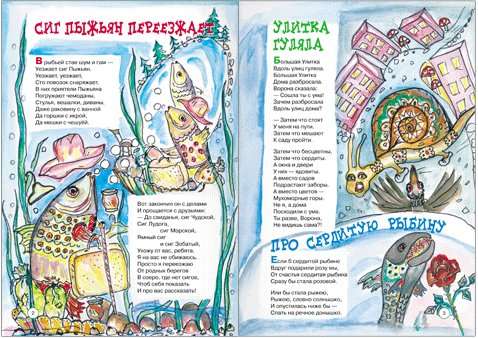 СИГ ПЫЖЬЯН ПЕРЕЕЗЖАЕТ
В рыбьей стае шум и гам —
Уезжает сиг Пыжьян.
Уезжает, уезжает,
Сто повозок снаряжает.
В них приятели Пыжьяна
Погружают чемоданы,
Стулья, вешалки, диваны,
Даже раковину с ванной
Да горшки с икрой,
Да мешки с чешуёй.
Вот закончил он с делами
И прощается с друзьями:
— До свиданья, сиг Чудской,
Сиг Лудога,
сиг Морской,
Ямный сиг
и сиг Зобатый,
Ухожу от вас, ребята.
Я на вас не обижаюсь,
Просто я переезжаю
От родных берегов
В озеро, где нет сигов,
Чтоб себя показать
И про вас рассказать!
2
УЛИТКА
ГУЛЯЛА
Большая Улитка
Вдоль улиц гуляла.
Большая Улитка
Дома разбросала.
Ворона сказала:
— Сошла ты с ума!
Зачем разбросала
Вдоль улиц дома?
— Затем что стоят
У меня на пути,
Затем что мешают
К саду пройти.
Затем что бесцветны,
Затем что сердиты,
А окна и двери
У них — ядовиты.
А вместо садов
Подрастают заборы.
А вместо цветов —
Мухоморные горы.
Не я, а дома
Посходили с ума,
Ты разве, Ворона,
Не видишь сама?!
ПРО СЕРДИТУЮ РЫБИНУ
Если б сердитой рыбине
Вдруг подарили розу мы,
От счастья сердитая рыбина
Сразу бы стала розовой.
Или бы стала рыжею,
Рыжею, словно солнышко,
И опустилась ниже бы —
Спать на речное донышко.
3